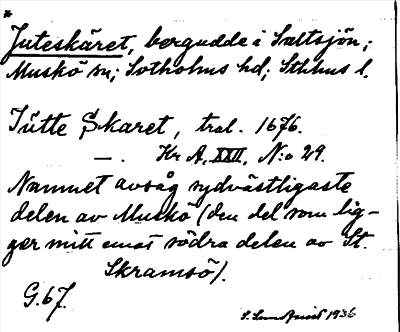 *
Juteskäret, bergudde i Saltsjön;
Muskö sn; Sotholms hd; Sthlms l.
Jutte Skaret, tral. 1676.
—. Kr A, XXII, N:o 29.
Namnet avsåg sydvästligaste
delen av Muskö (den del som lig-
ger mitt emot södra delen av St.
Skramsö).
G. 67.
1936